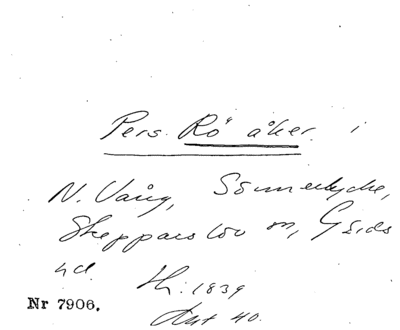 Pers. Rö åker. i
N. Vång, Sönnerlycke,
Skepparslöv sn, Gärds
hd. Th. 1839
Akt 40.
Nr 7906.